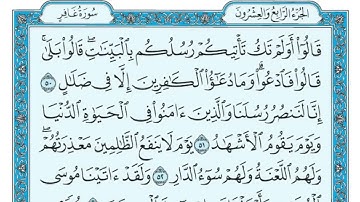 الجزء الرابع والعشرون سورة غافر
قَالُوٓا۟ أَوَلَمْ تَكُ تَأْتِيكُمْ رُسُلُكُم بِٱلْبَيِّنَٰتِ ۖ قَالُوا۟ بَلَىٰ ۚ
قَالُوا۟ فَٱدْعُوا۟ ۗ وَمَا دُعَٰٓؤُا۟ ٱلْكَٰفِرِينَ إِلَّا فِى ضَلَٰلٍ ٥٠
إِنَّا لَنَنصُرُ رُسُلَنَا وَٱلَّذِينَ ءَامَنُوا۟ فِى ٱلْحَيَوٰةِ ٱلدُّنْيَا
وَيَوْمَ يَقُومُ ٱلْأَشْهَٰدُ ٥١ يَوْمَ لَا يَنفَعُ ٱلظَّٰلِمِينَ مَعْذِرَتُهُمْ ۖ
وَلَهُمُ ٱللَّعْنَةُ وَلَهُمْ سُوٓءُ ٱلدَّارِ ٥٢ وَلَقَدْ ءَاتَيْنَا مُوسَى